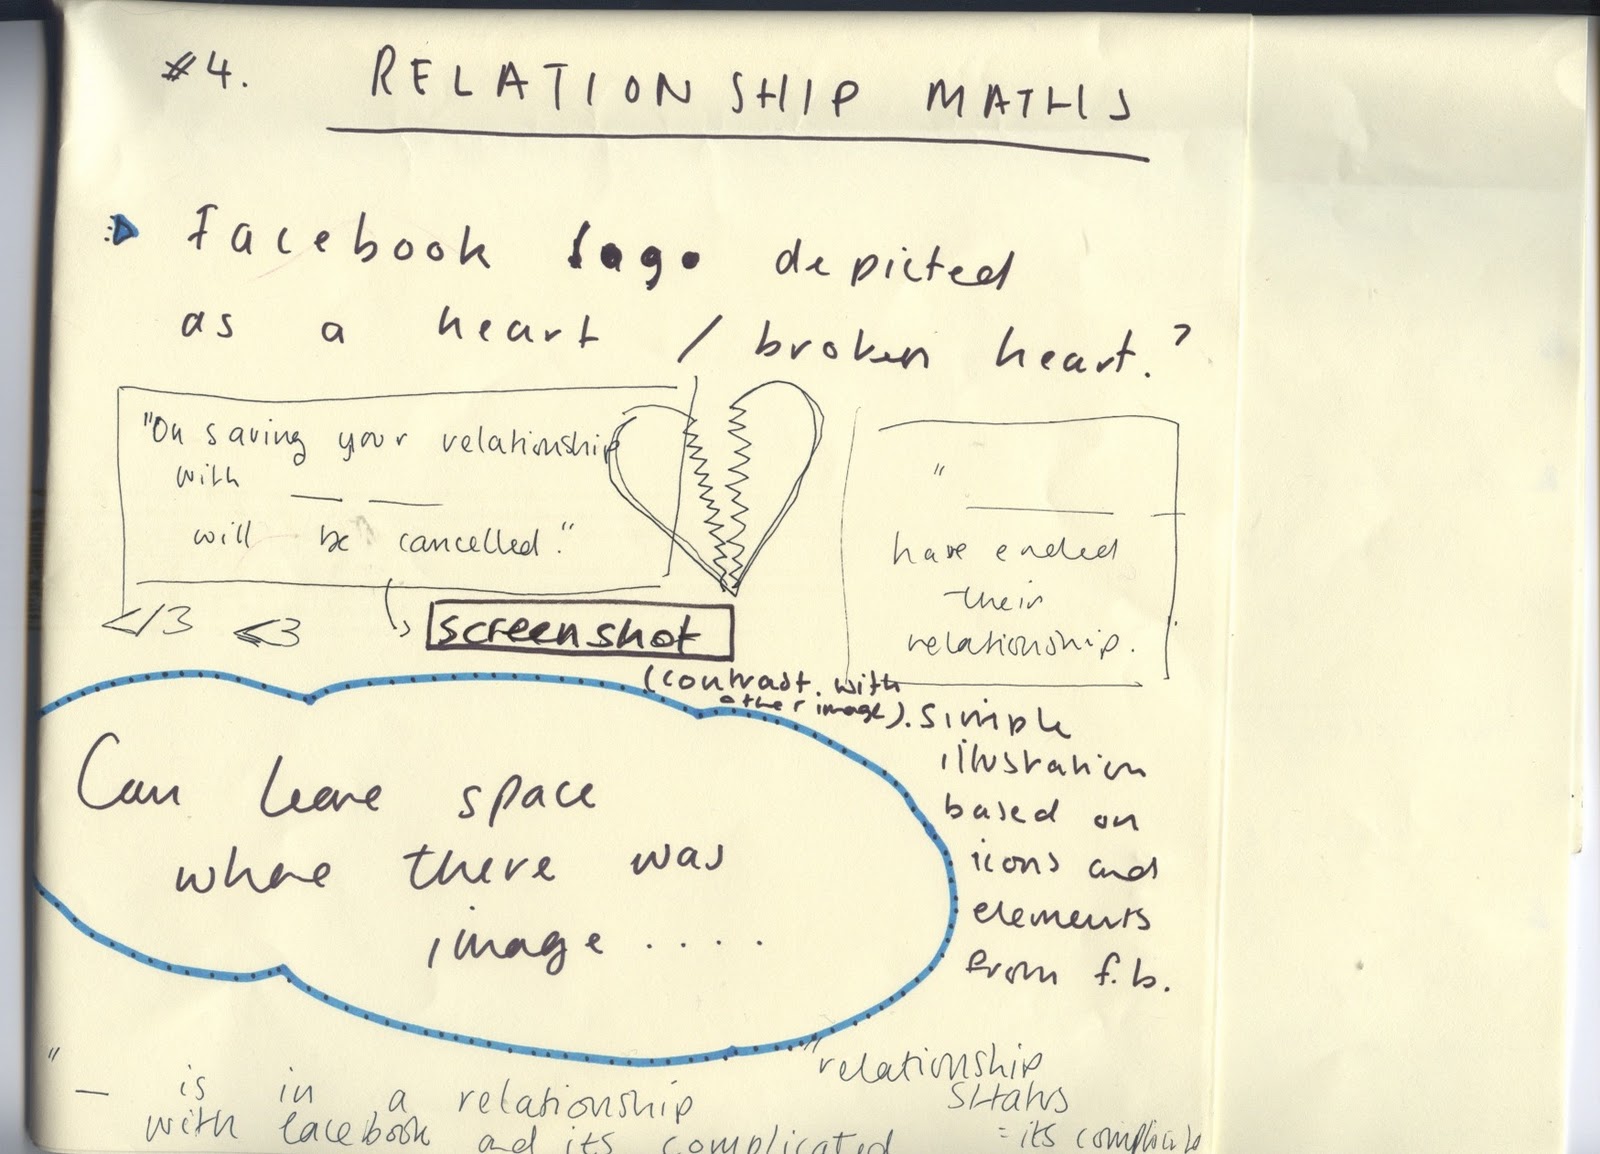 #4. RELATIONSHIP MATHS
Facebook logo depicted
as a heart / broken heart.?
"On saving your relationship
with __ __
will be cancelled."
</3 <3
screenshot
(contrast with
other image).
"
____ __
have ended
their
relationship.
simple
illustration
based on
icons and
elements
from f.b.
Can leave space
where there was
image ....
"__ is in a relationship
with facebook and its complicated
"relationship
status
= its complicate